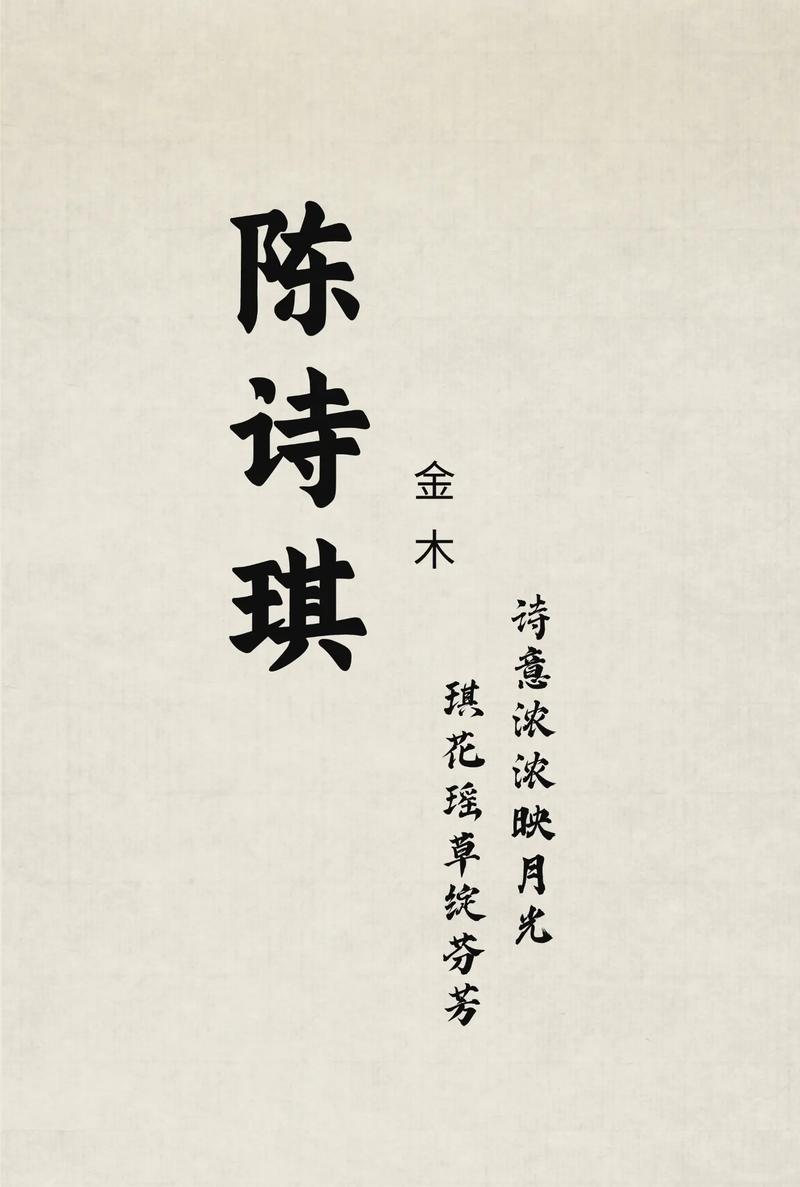 陈诗琪
金木
诗意浓浓映月光
琪花瑶草绽芬芳